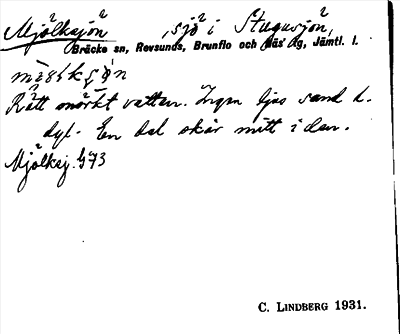 Mjölksjön, sjö i Stugusjön,
Bräcke sn, Revsunds, Brunflo och Näs tlg, Jämtl. l.
Rätt mörkt vatten. Ingen ljus sand l.
dyl. En del skär mitt i den.
Mjölksj. G73
C. LINDBERG 1931.